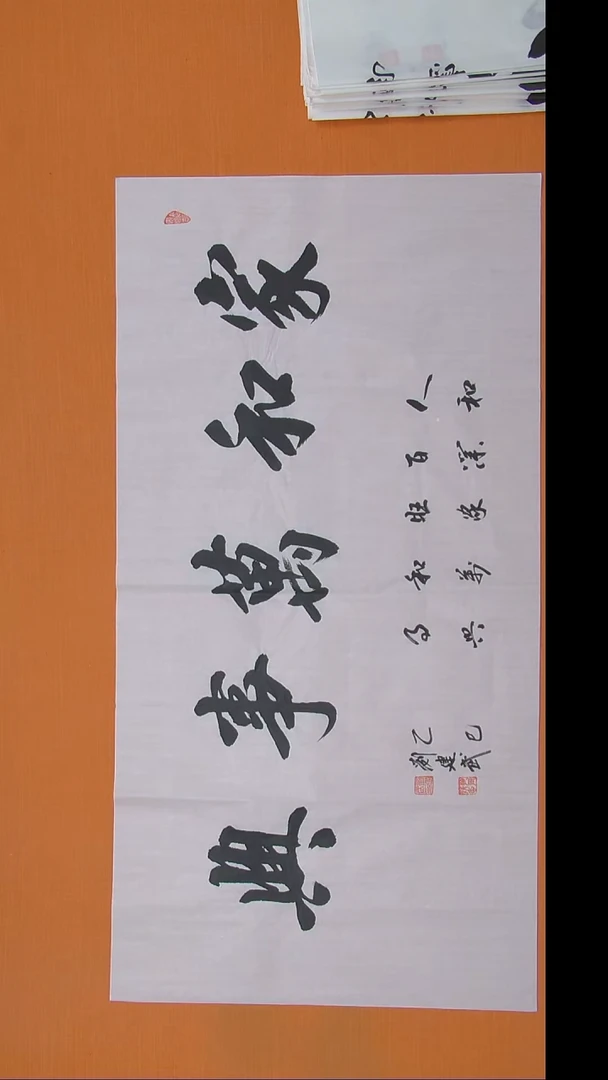 家和萬事興
人和
百業
旺家
和萬
事興
乙巳
劉建武